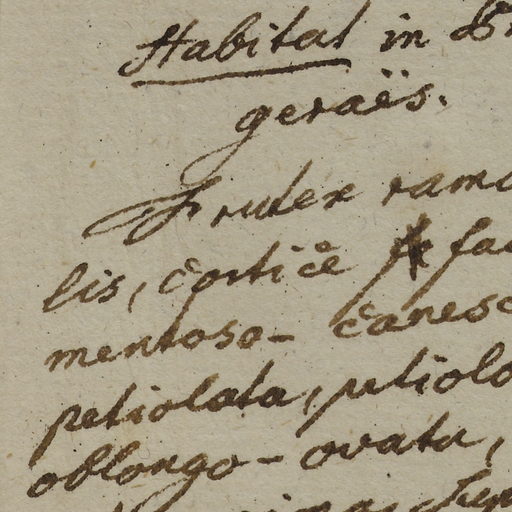 Habitat in
geraës.
Frutex ramo
lis, cortice fa
mentoso- canesc
petiolata, petiolo
oblongo-ovata,